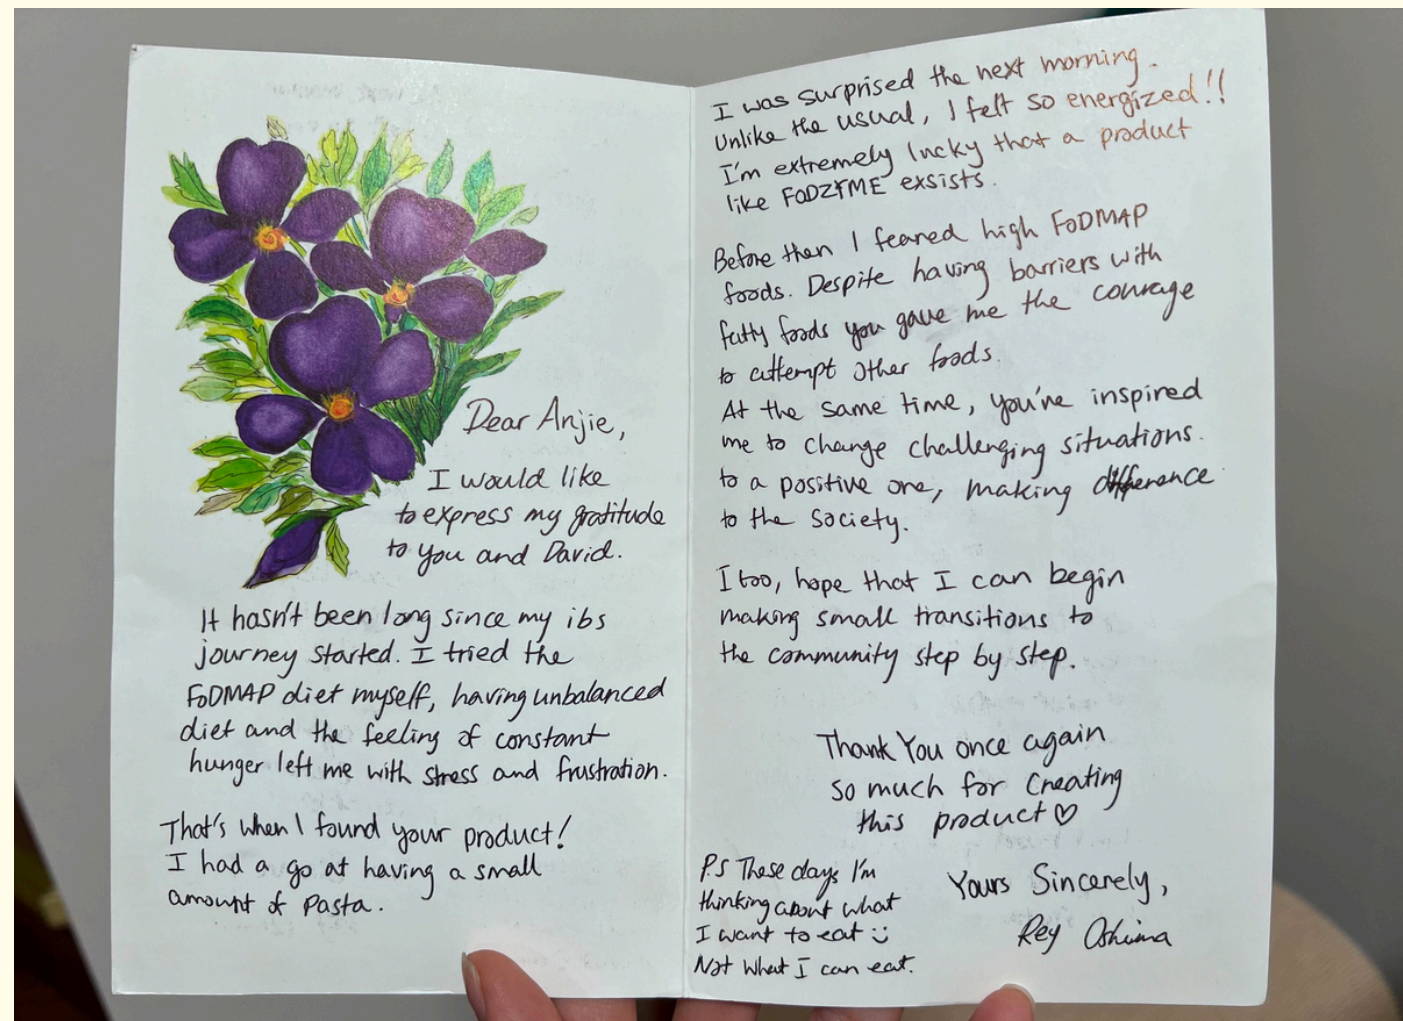 Dear Anjie,
I would like
to express my gratitude
to you and David.
It hasn't been long since my ibs
journey started. I tried the
FODMAP diet myself, having unbalanced
diet and the feeling of constant
hunger left me with stress and frustration.
That's when I found your product!
I had a go at having a small
amount of Pasta.
I was surprised the next morning.
Unlike the usual, I felt so energized!!
I'm extremely lucky that a product
like FODZYME exsists.
Before then I feared high FODMAP
foods. Despite having barriers with
fatty foods you gave me the courage
to attempt other foods.
At the same time, you've inspired
me to change challenging situations
to a positive one, making difference
to the society.
I too, hope that I can begin
making small transitions to
the community step by step.
Thank You once again
so much for creating
this product ♡
P.S These days I'm
thinking about what
I want to eat :)
Not what I can eat.
Yours Sincerely,
Rey Oshima